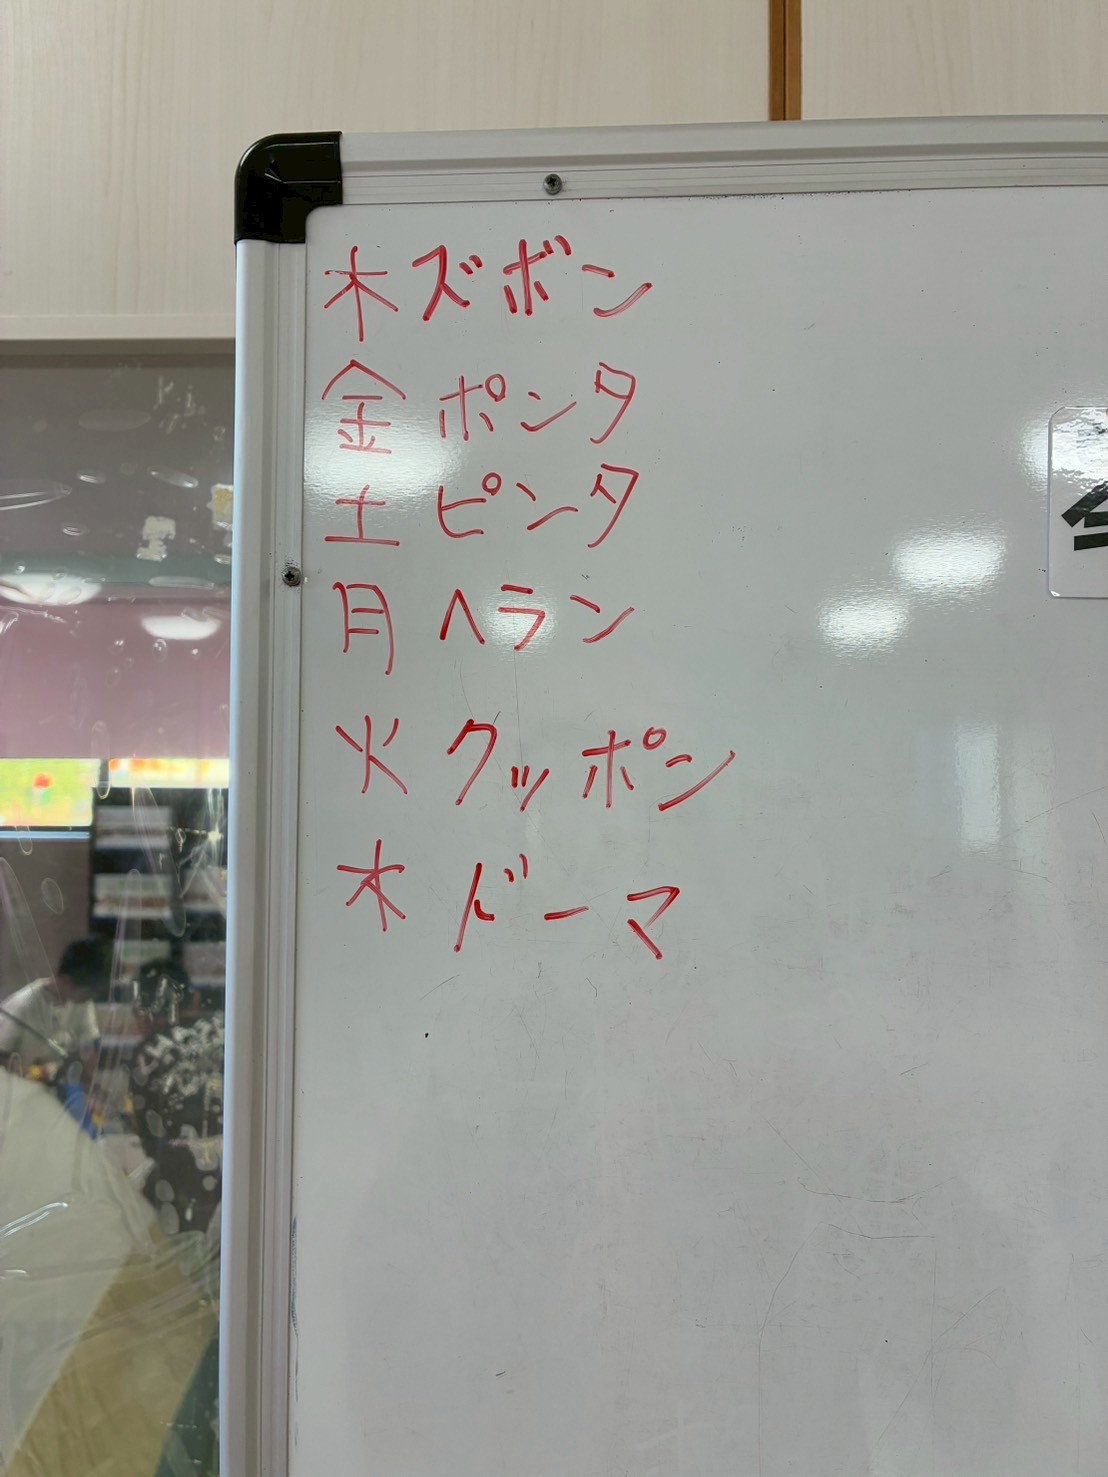 木 ズボン
金 ポンタ
土 ピンタ
月 ヘラン
火 クッポン
木 ドーマ